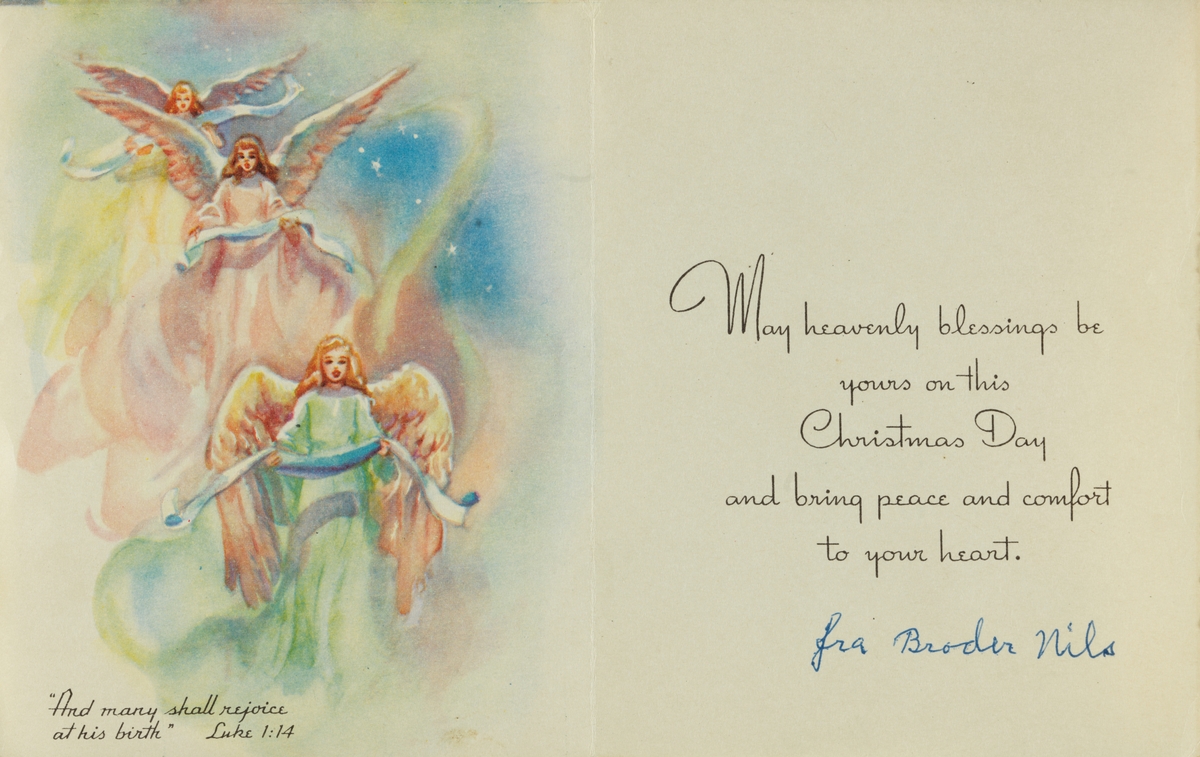 "And many shall rejoice
at his birth" Luke 1:14
May heavenly blessings be
yours on this
Christmas Day
and bring peace and comfort
to your heart.
fra Broder Nils